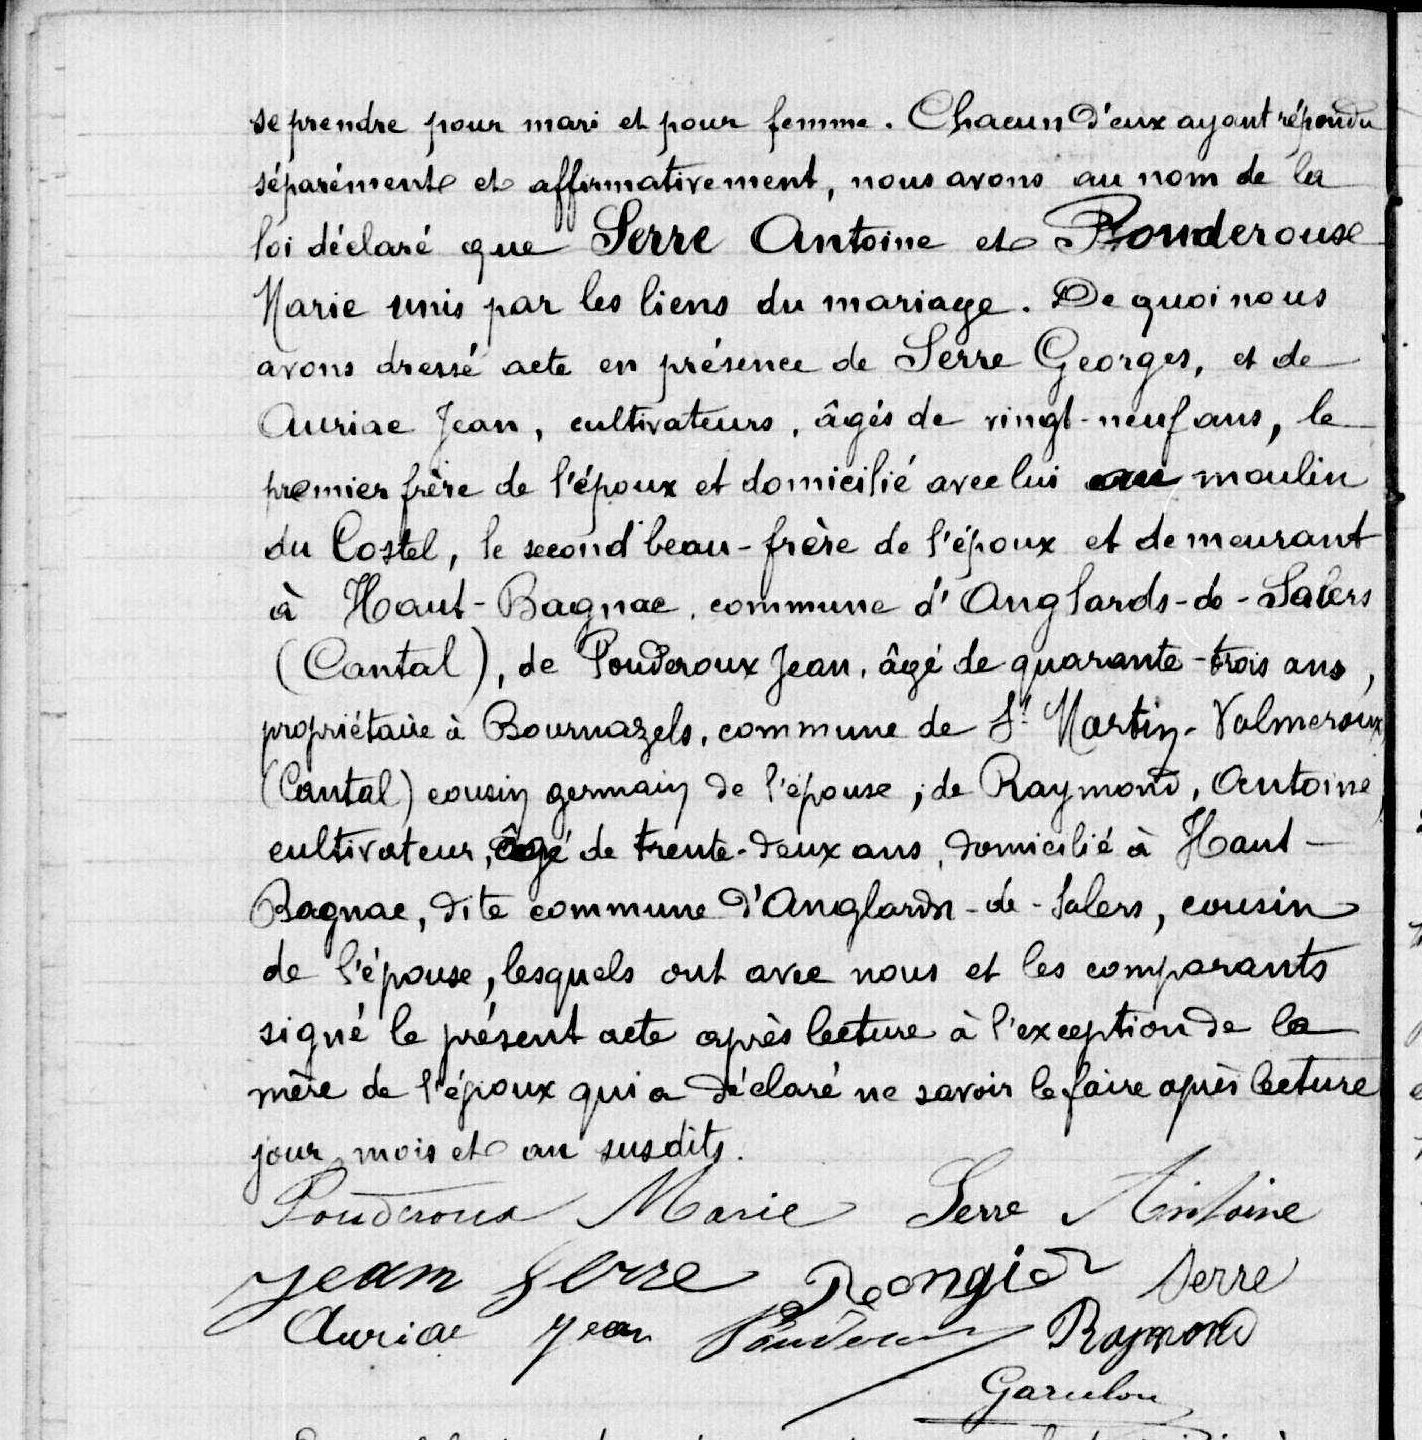 se prendre pour mari et pour femme. Chacun d'eux ayant répondu
séparément et affirmativement, nous avons au nom de la
loi déclaré que Serre Antoine et Pouderoux
Marie unis par les liens du mariage. De quoi nous
avons dressé acte en présence de Serre Georges, et de
Auriac Jean, cultivateurs, âgés de vingt-neuf ans, le
premier frère de l'époux et domicilié avec lui au moulin
du Costel, le second beau-frère de l'époux et demeurant
à Haut-Bagnac, commune d'Anglards-de-Salers
(Cantal), de Pouderoux Jean, âgé de quarante-trois ans,
propriétaire à Bournazels, commune de St Martin-Valmeroux
(Cantal) cousin germain de l'épouse, de Raymond, Antoine
cultivateur, âgé de trente-deux ans, domicilié à Haut-
Bagnac, dite commune d'Anglards-de-Salers, cousin
de l'épouse, lesquels ont avec nous et les comparants
signé le présent acte après lecture à l'exception de la
mère de l'époux qui a déclaré ne savoir le faire après lecture
jour, mois et an susdits.
Pouderoux Marie Serre Antoine
Jean Serre Rongier Serre
Auriac Jean Pouderoux Raymond